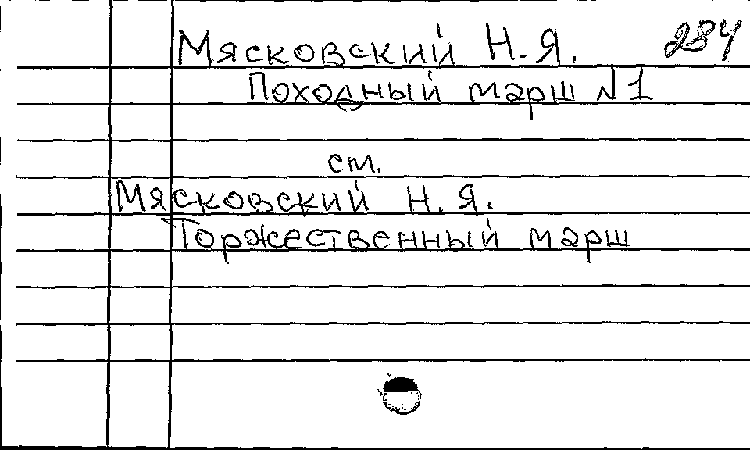 Мясковский Н.Я. 284
Походный марш N1
ст.
Мясковский Н.Я.
Торжественный марш